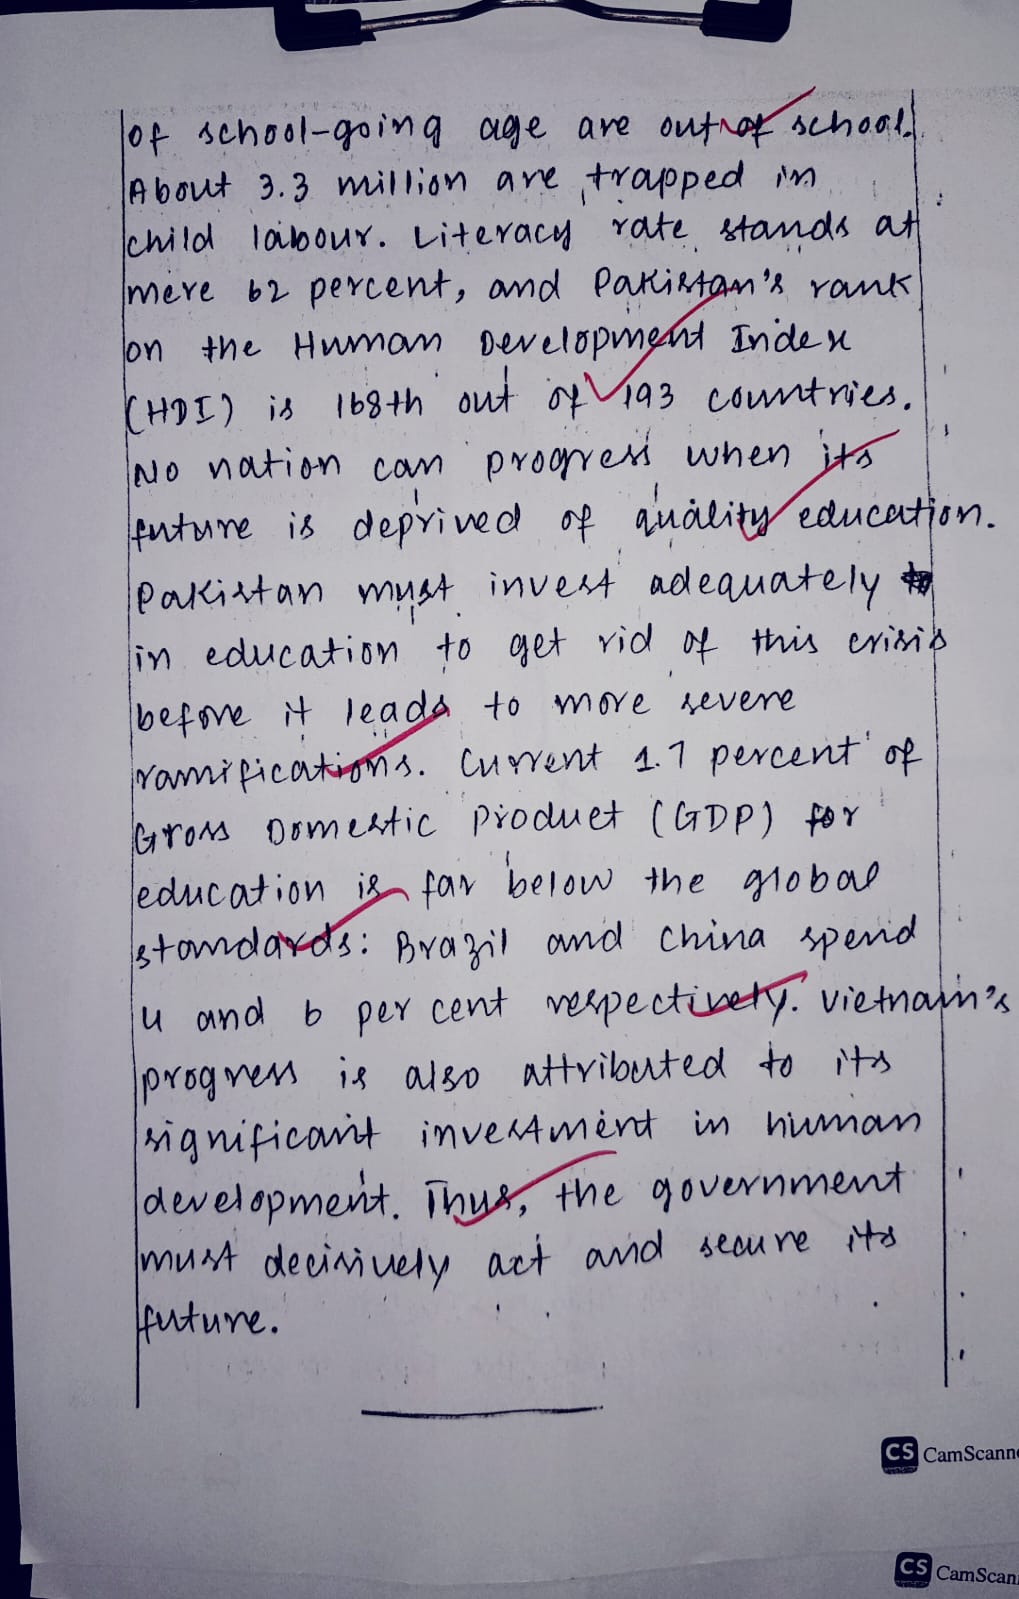 of school-going age are out of school.
About 3.3 million are trapped in
child labour. Literacy rate stands at
mere 62 percent, and Pakistan's rank
on the Human Development Index
(HDI) is 168th out of 193 countries.
No nation can progress when its
future is deprived of quality education.
Pakistan must invest adequately
in education to get rid of this crisis
before it leads to more severe
ramifications. Current 1.7 percent of
Gross Domestic Product (GDP) for
education is far below the global
standards: Brazil and China spend
4 and 6 per cent respectively. Vietnam's
progress is also attributed to its
significant investment in human
development. Thus, the government
must decisively act and secure its
future.
CS CamScanne
CS CamScan